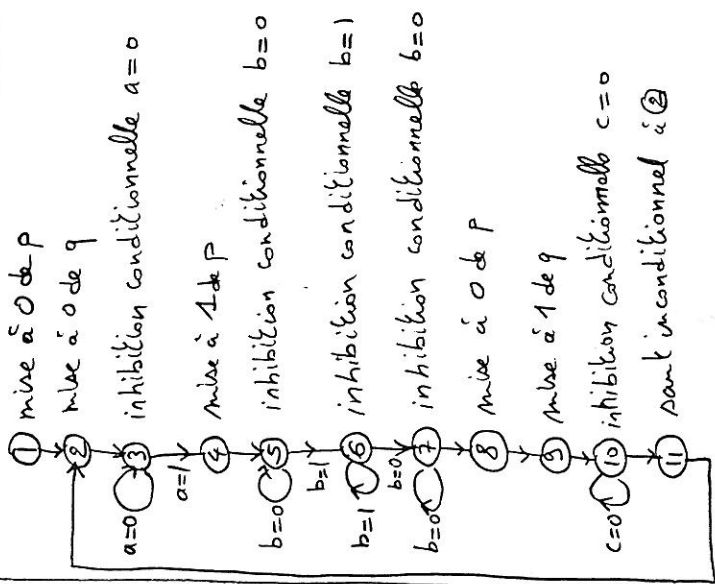 ① mise à 0 de p
② mise à 0 de q
③ inhibition conditionnelle a=0
a=0
a=1
④ mise à 1 de p
⑤ inhibition conditionnelle b=0
b=0
b=1
⑥ inhibition conditionnelle b=1
b=1
b=0
⑦ inhibition conditionnelle b=0
b=0
⑧ mise à 0 de p
⑨ mise à 1 de q
⑩ inhibition conditionnelle c=0
c=0
⑪ saut inconditionnel à ②